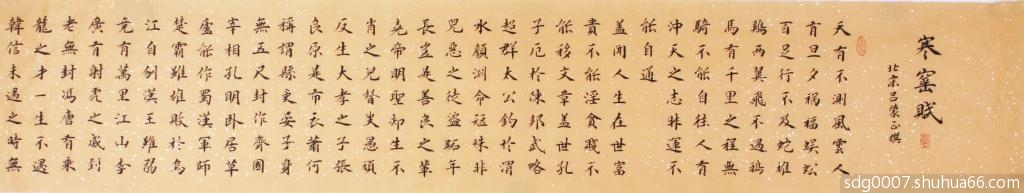 寒窰賦
北宋吕蒙正撰
天有不測風雲人
有旦夕禍福蜈蚣
百足行不及蛇雄
鷄兩翼飛不過鴉
馬有千里之程無
騎不能自往人有
沖天之志非運不
能自通
盖聞人生在世富
貴不能淫貧賤不
能移文章盖世孔
子厄於陳邦武略
超群太公釣於渭
水顔淵命短殊非
兇惡之徒盗跖年
長豈是善良之輩
堯帝明聖却生不
肖之兒瞽叟愚頑
反生大孝之子張
良原是布衣蕭何
稱謂縣吏晏子身
無五尺封作齊國
宰相孔明卧居草
廬能作蜀漢軍師
楚霸雖雄敗於烏
江自刎漢王雖弱
竟有萬里江山李
廣有射虎之威到
老無封馮唐有乘
龍之才一生不遇
韓信未遇之時無
sdg0007.shuhua66.com